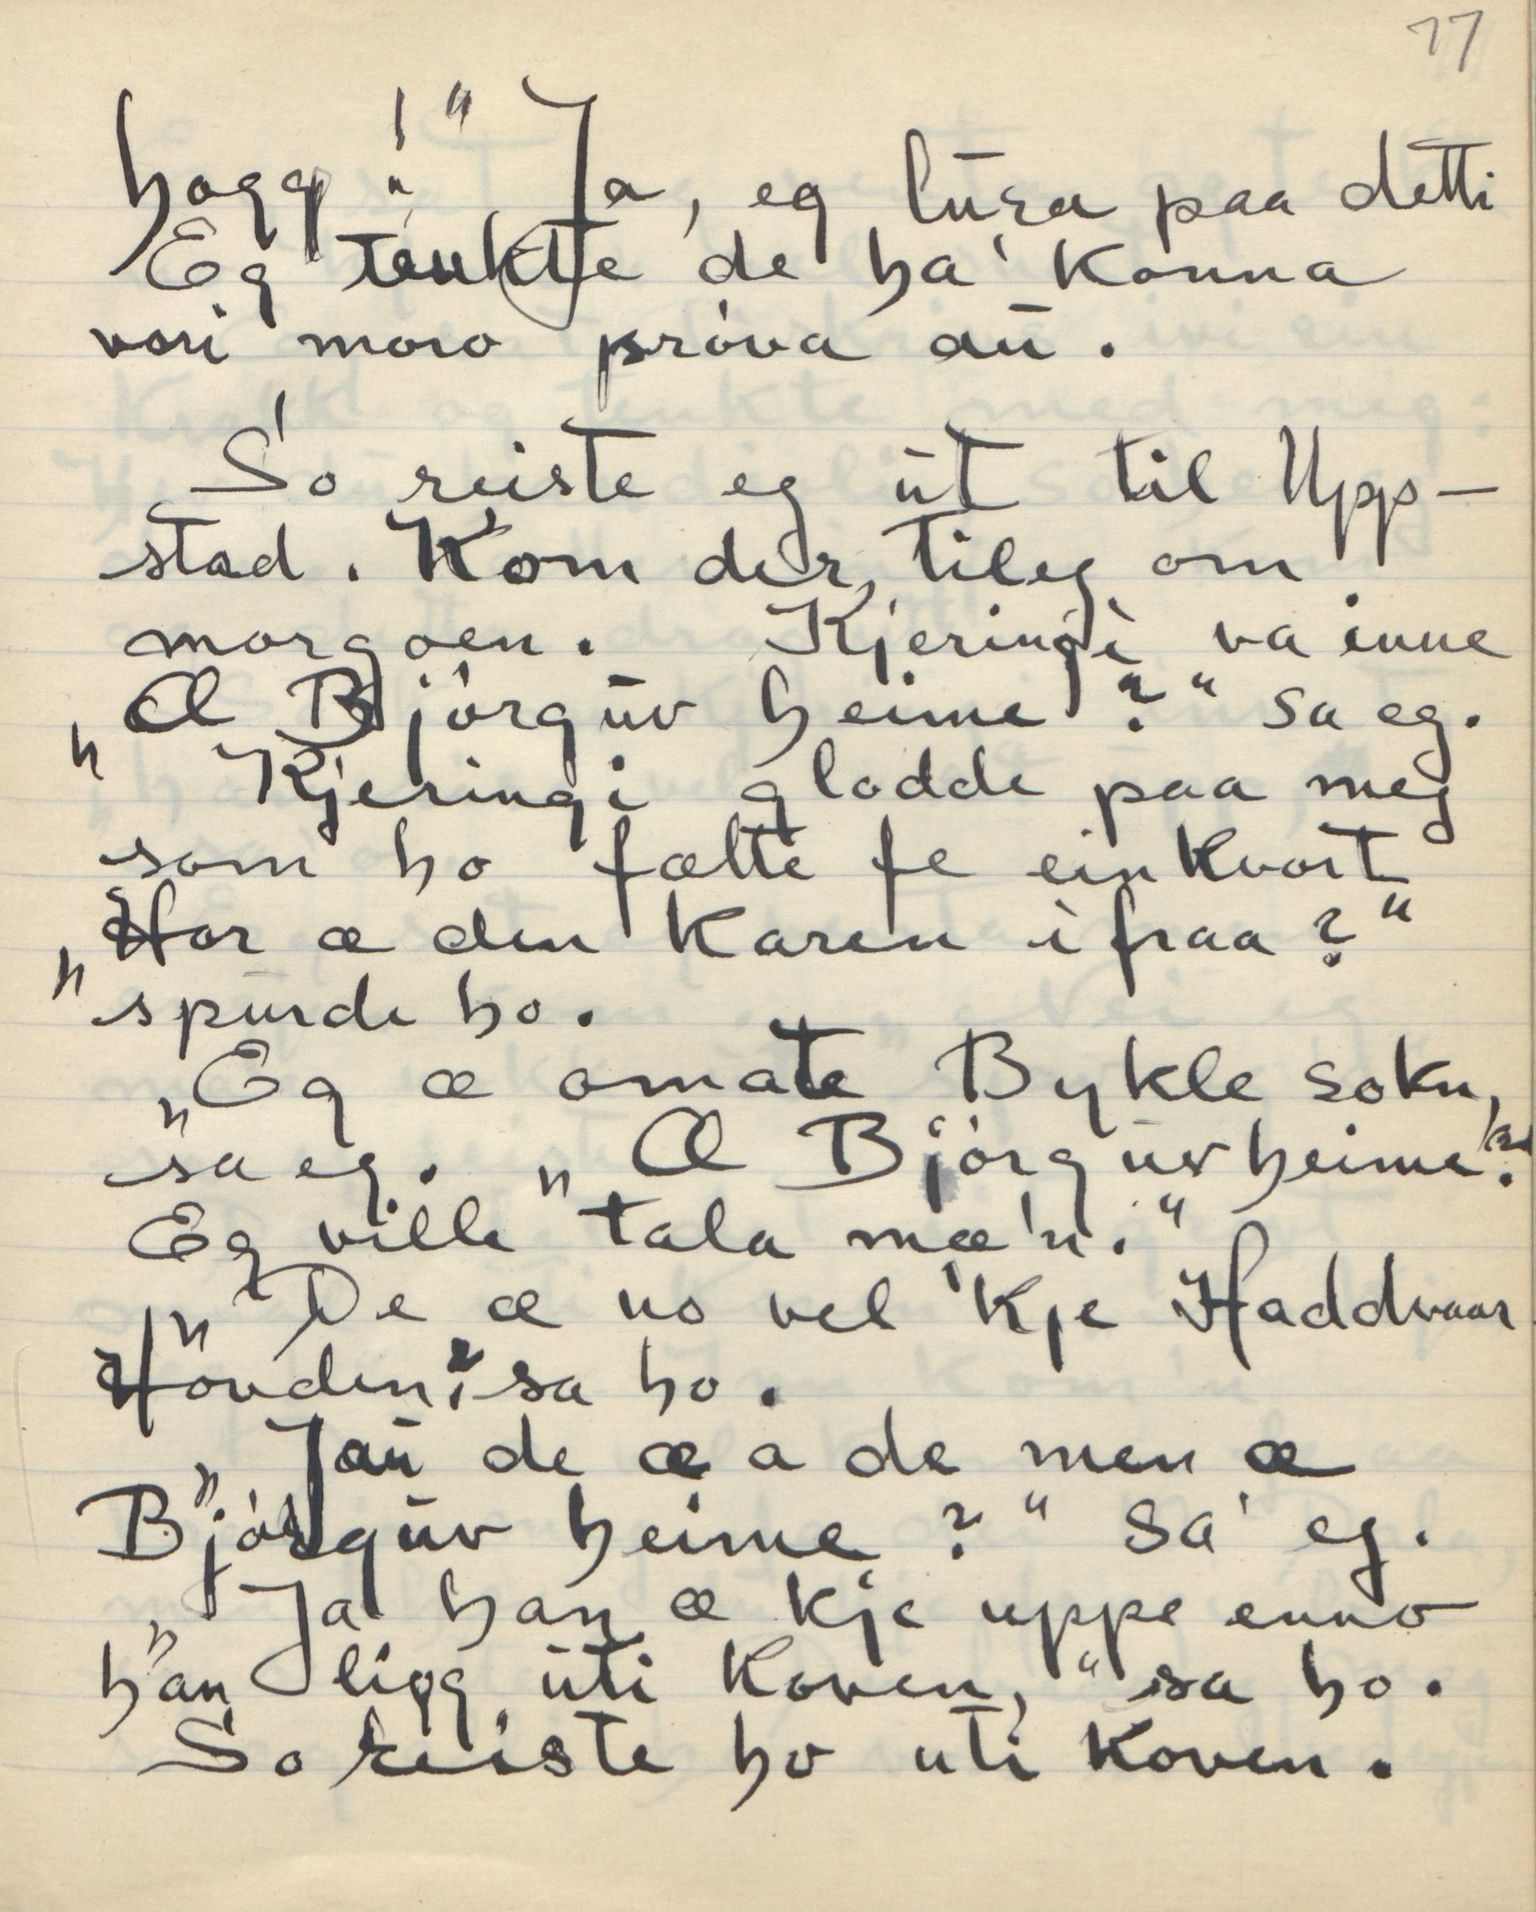 77
hogg!" Ja, eg lura paa detti
Eg tenkte de ha' konna
vori moro pröva au.
So reiste eg ut til Upp-
stad. Kom der tileg om
morgoen. Kjeringi va inne
"Æ Björguv heime?" sa eg.
Kjeringi glodde paa meg
som ho fætte fe einkvort
"Hor æ den karen ifraa?"
spurde ho.
"Eg æ omate Bykle sokn,
sa eg. "Æ Björguv heime?
Eg ville tala mæ'n."
"De æ no vel 'kje Haddvaar
Hovden? sa ho.
"Jau de æ a de men æ
Björguv heime?" sa' eg.
"Ja han æ kje uppe enno
han ligg uti koven," sa ho.
So reiste ho uti koven.